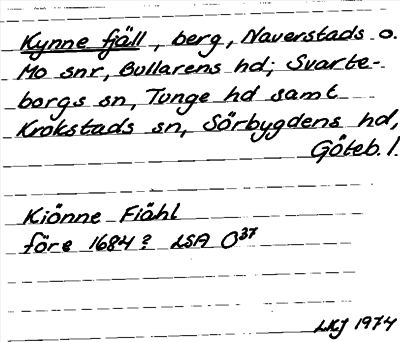 Kynne fjäll, berg, Naverstads o.
Mo snr, Bullarens hd; Svarte-
borgs sn, Tunge hd samt
Krokstads sn, Sörbygdens hd,
Göteb. l.
Kiönne Fiähl
före 1684? LSA O37
LKJ 1974